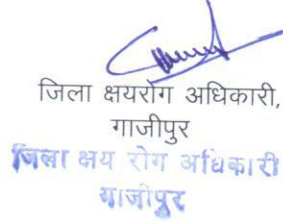 जिला क्षयरोग अधिकारी,
गाजीपुर
जिला क्षय रोग अधिकारी
गाजीपुर